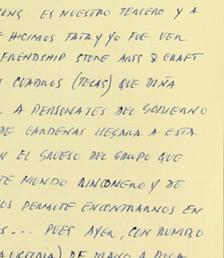 ES NUESTRO TERCERO Y A
HICIMOS TATA Y YO FUE VER
FRIENDSHIP STORE ARTS & CRAFT
CUADROS (TELAS) QUE DOÑA
A PERSONAJES DEL GOBIERNO
DE CARDENAS LLEGARA A ESTA
EL GRUESO DEL GRUPO QUE
MUNDO RINCONERO Y DE
PERMITE ENCONTRARNOS EN
... PUES AYER, CON RUMBO
DE MANO A